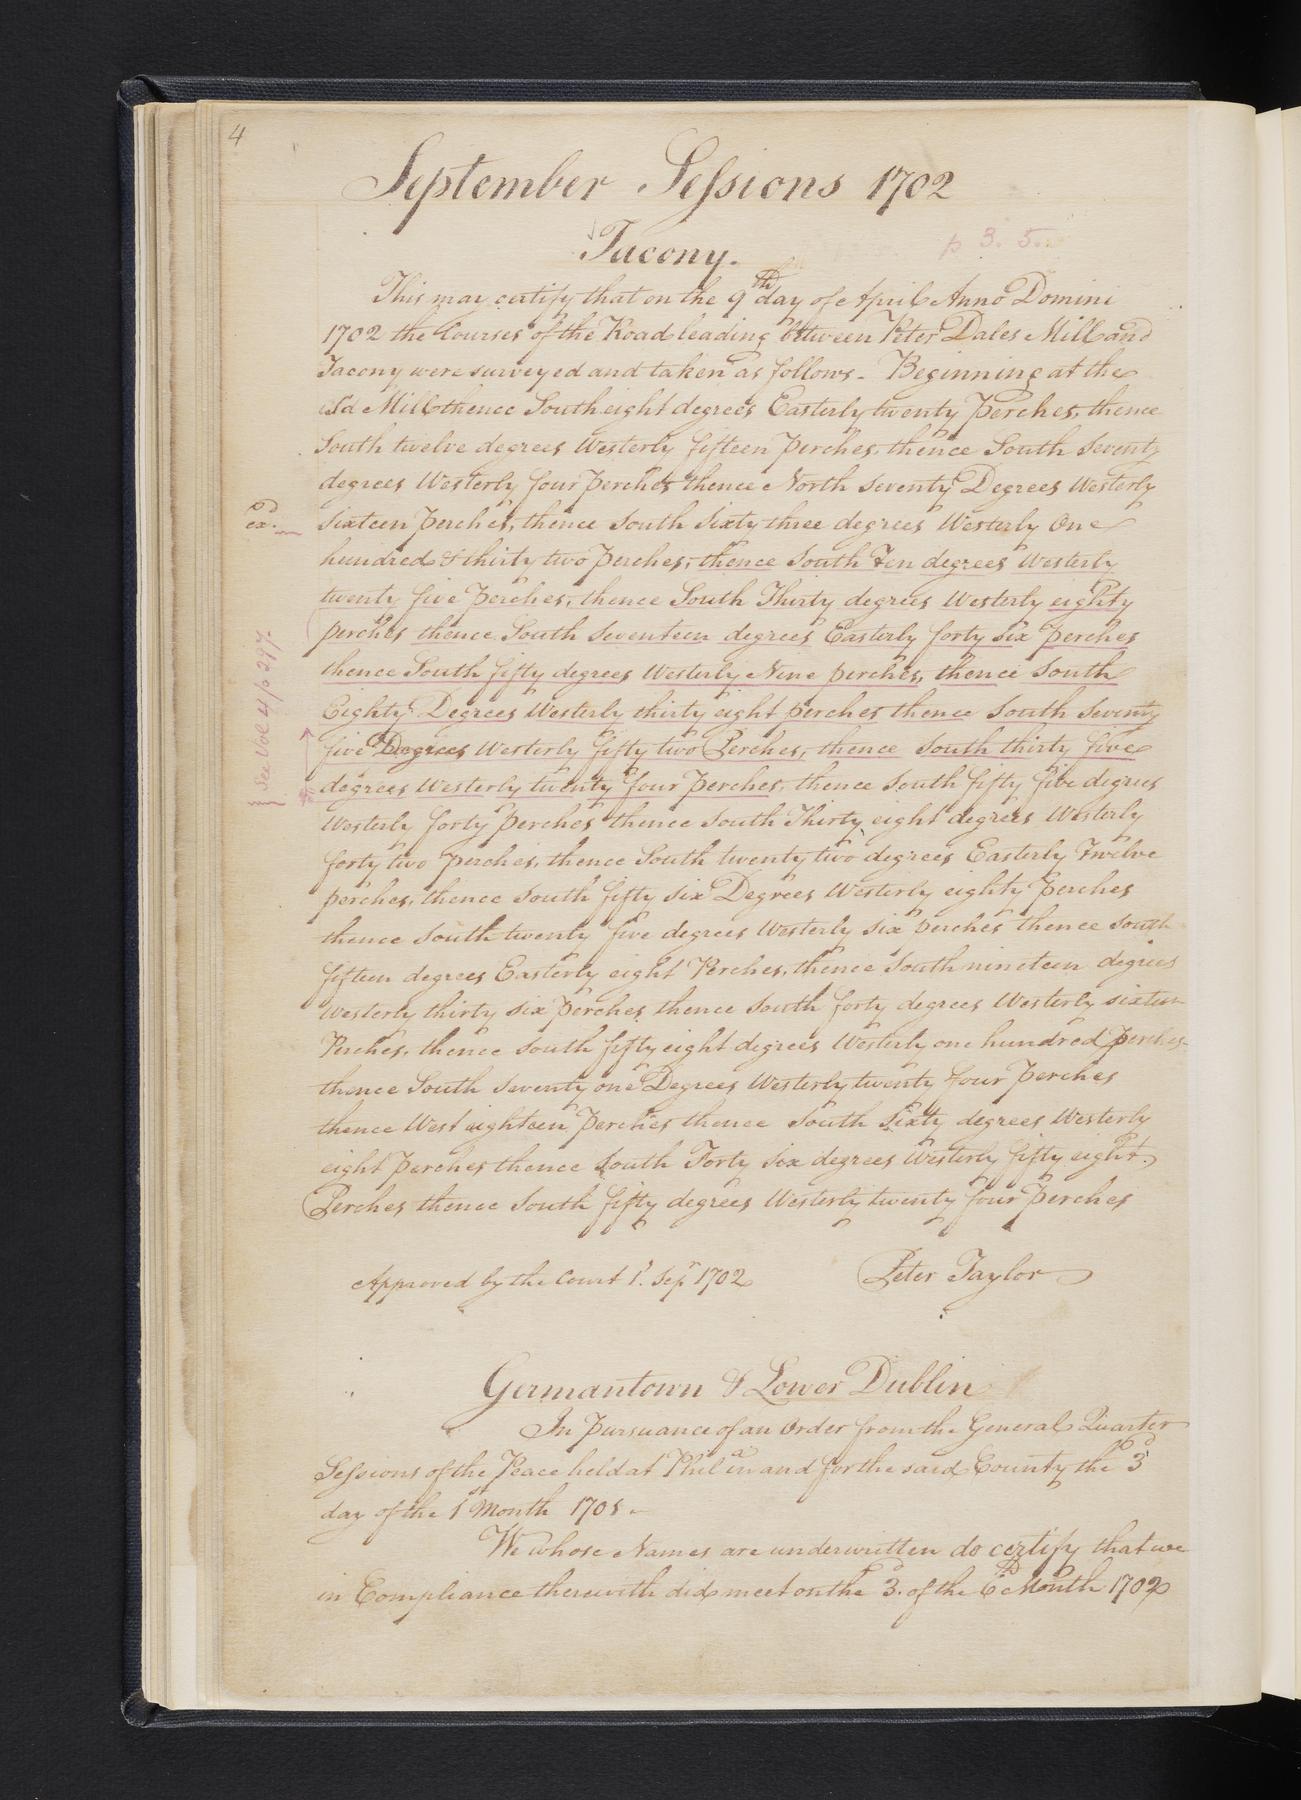 4
September Sessions 1702
Tacony.
p 3. 5.
This may certify that on the 9th day of April Anno Domini
1702 the Courses of the Road leading between Peter Dales Mill and
Tacony were surveyed and taken as follows - Beginning at the
sd Mill thence South eight degrees Easterly twenty perches, thence
South twelve degrees Westerly fifteen perches, thence South Seventy
degrees Westerly four perches thence North Seventy Degrees Westerly
exd.
Sixteen perches, thence South Sixty three degrees Westerly One
hundred & thirty two perches, thence South Ten degrees Westerly
twenty five perches, thence South Thirty degrees Westerly eighty
perches thence South Seventeen degrees Easterly forty six perches
thence South fifty degrees Westerly Nine perches, thence South
Eighty Degrees Westerly thirty eight perches thence South Seventy
five Degrees Westerly fifty two Perches, thence South thirty five
degrees Westerly twenty four perches, thence South fifty five degrees
See Vol 4/p 297.
Westerly forty perches thence South Thirty eight degrees Westerly
forty two perches, thence South twenty two degrees Easterly Twelve
perches, thence South fifty six Degrees Westerly eighty perches
thence South twenty five degrees Westerly six perches thence South
fifteen degrees Easterly eight Perches, thence South nineteen degrees
Westerly thirty six perches thence South forty degrees Westerly sixteen
Perches, thence South fifty eight degrees Westerly one hundred perches
thence South Seventy one Degrees Westerly twenty four perches
thence West eighteen perches thence South Sixty degrees Westerly
eight perches thence South Forty Six degrees Westerly fifty eight
Perches thence South fifty degrees Westerly twenty four perches
Approved by the Court 1t. Sepr 1702 Peter Taylor
Germantown & Lower Dublin
In Pursuance of an Order from the General Quarter
Sessions of the Peace held at Phila in and for the said County the 3d
day of the 1st Month 1701 -
We whose Names are underwritten do certify that we
in Compliance therewith did meet on the 3d. of the 6th Month 1702